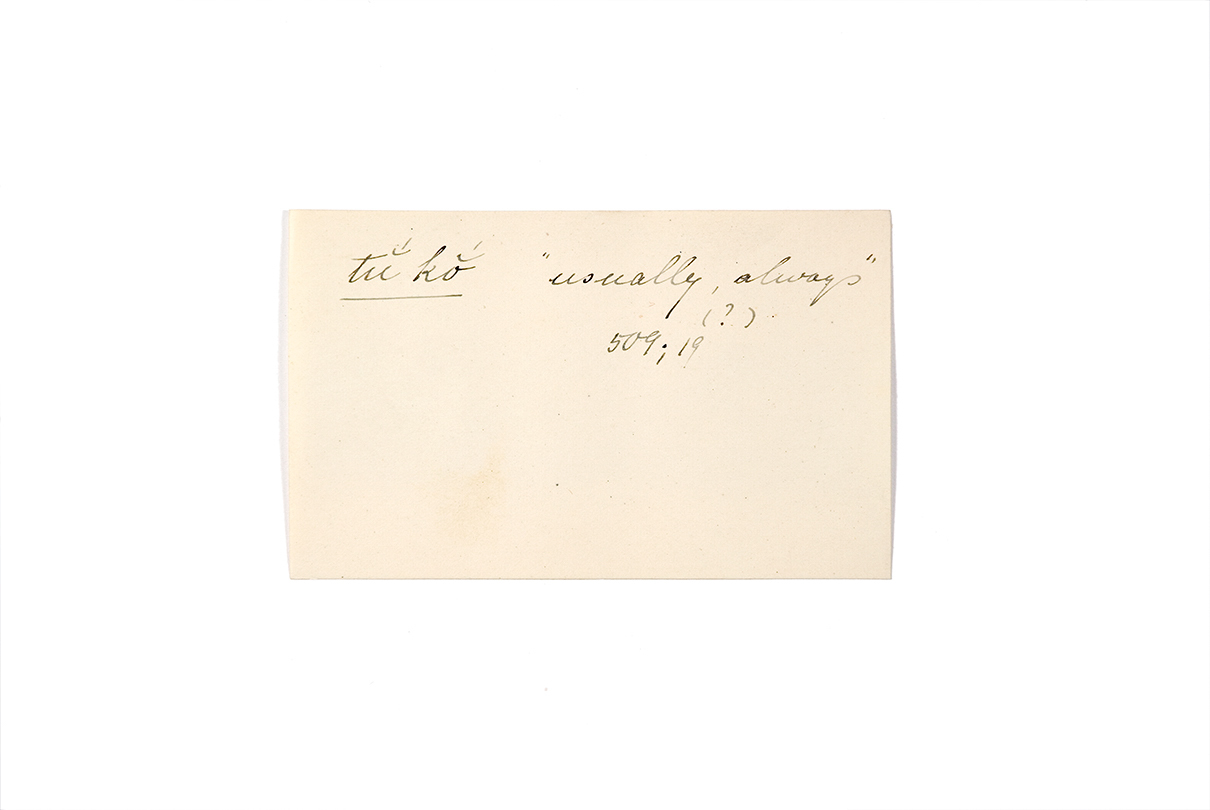 tŭ́ kŏ́ "usually, always"
(?)
509; 19